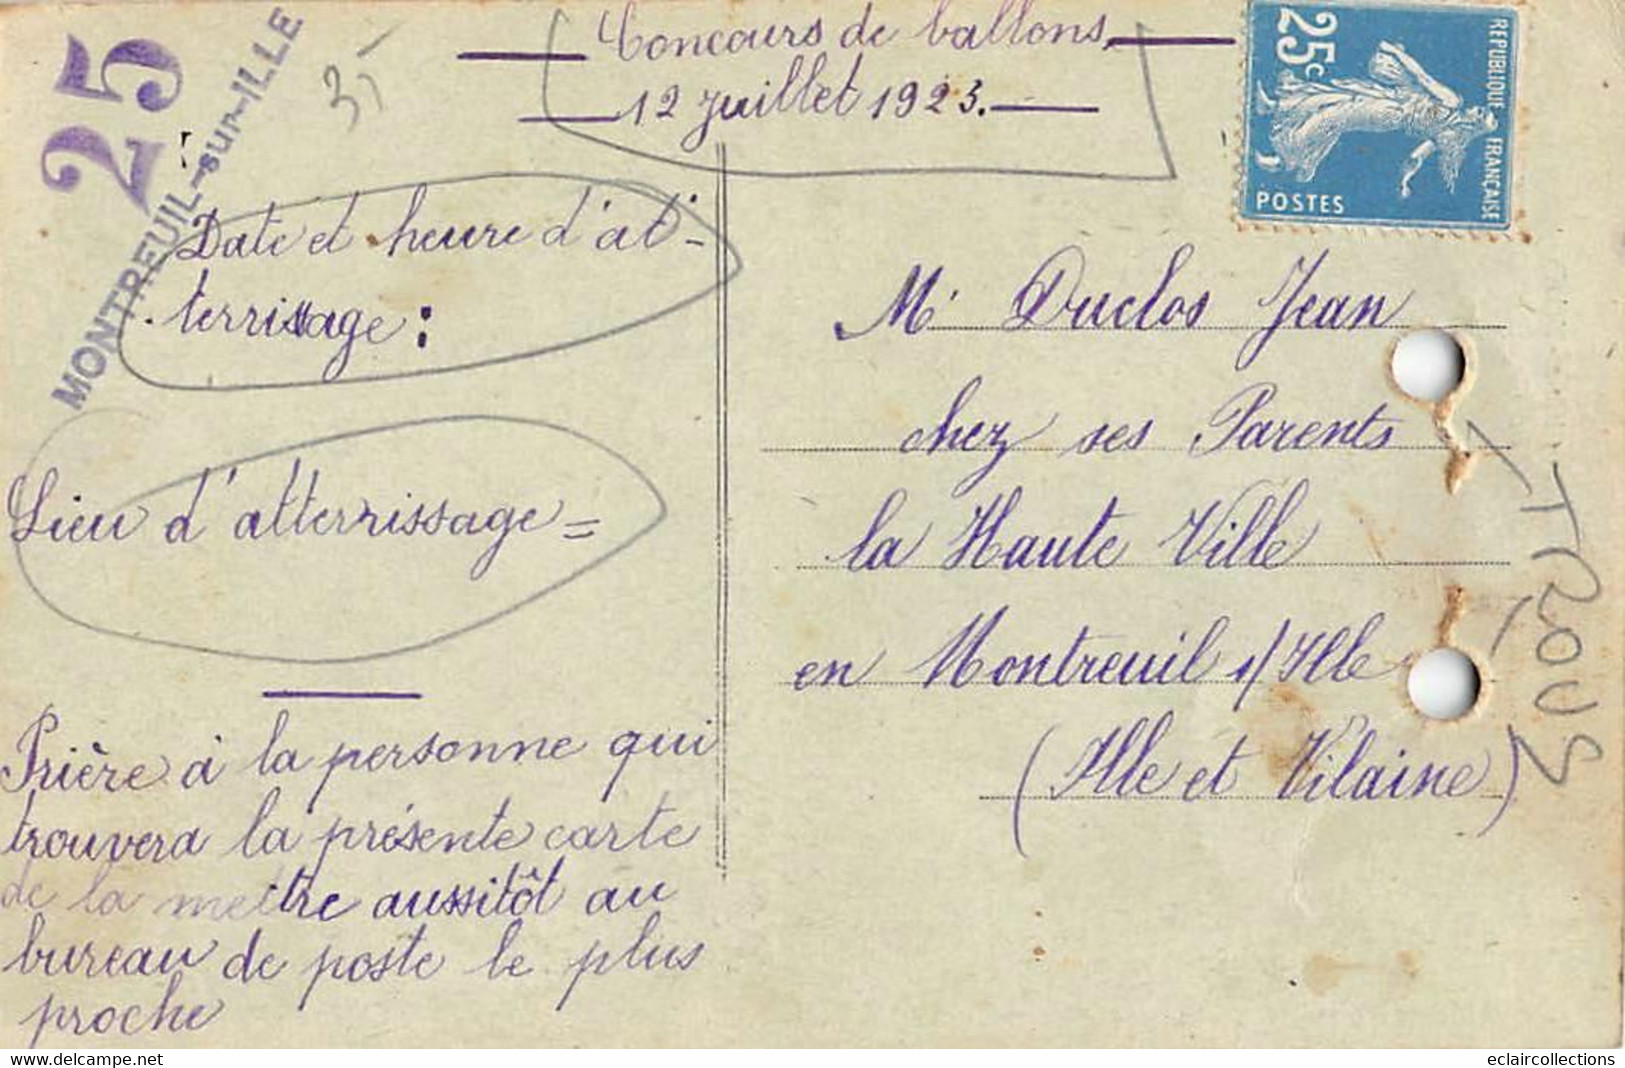 Concours de ballons,
12 Juillet 1923.
25
MONTREUIL-sur-ILLE
3,-
25c
REPUBLIQUE FRANÇAISE
POSTES
Date et heure d'at-
terrissage :
Lieu d'atterrissage =
Prière à la personne qui
trouvera la présente carte
de la mettre aussitôt au
bureau de poste le plus
proche
Mr Duclos Jean
chez ses Parents
la Haute Ville
en Montreuil s/Ille
(Ille et Vilaine)
TROUS
delcampe.net
eclaircollections